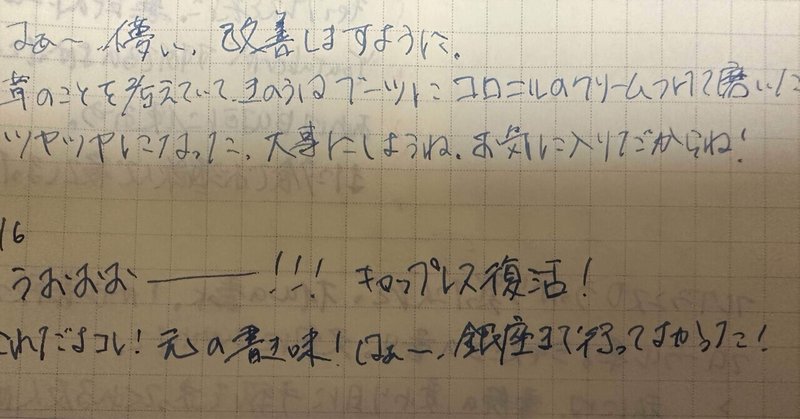 はぁ〜、儚い、改善しますように。
革のことを考えていて、きのうはブーツにコロニルのクリームつけて磨いた
ツヤツヤになった、大事にしようね。お気に入りだからね!
16
うおおお——!!! キャップレス復活!
これだよコレ!元の書き味!はぁ〜、銀座まで行ってよかった!